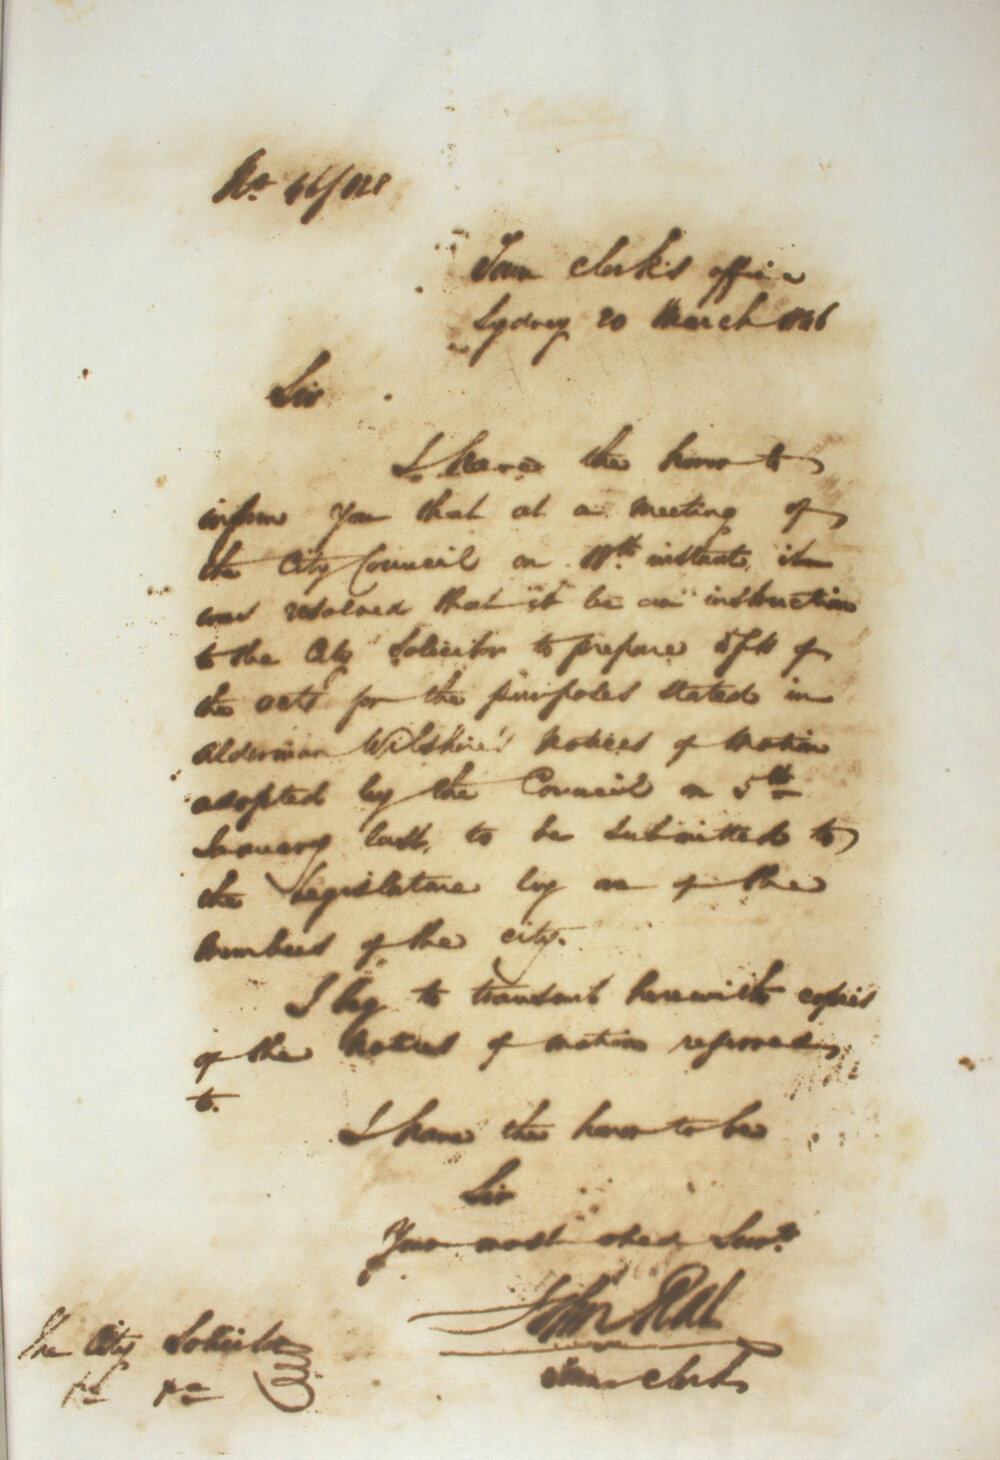 No. 46/128
Town Clerk's office
Sydney 20 March 1846
Sir
I have the honor to
inform You that at a meeting of
the City Council on instant, it
was resolved that it be an instruction
to the City Solicitor to prepare of
the acts for the purposes stated in
Alderman Wilshire's Notices of Motion
adopted by the Council on 5th
January last, to be submitted to
the Legislature by on of the
Members of the city.
I beg to transmit herewith copies
of the Notices of motion referred
to.
I have the honor to be
Sir
Your most obed. Servt.
John Rae
Town Clerk
The City Solicitor